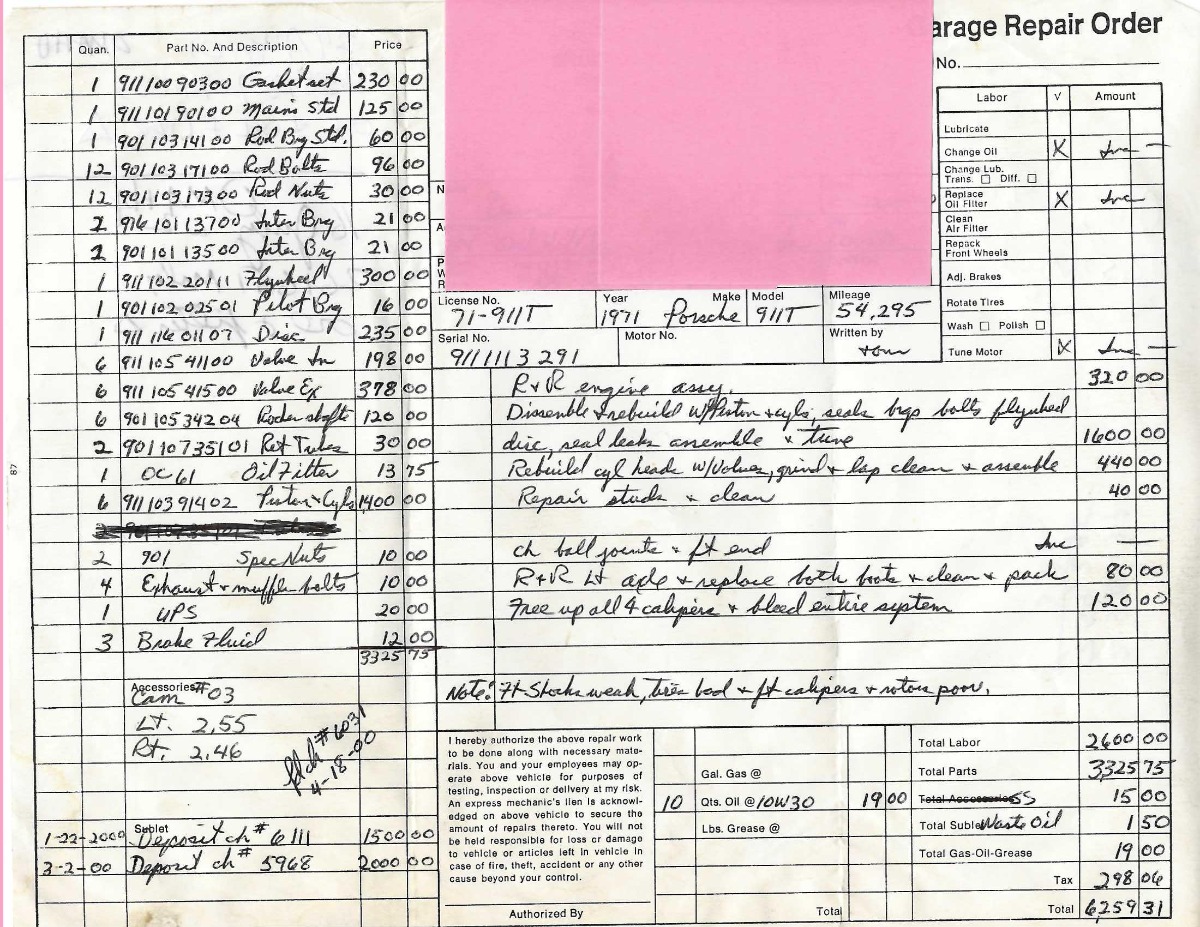 arage Repair Order
No.
Quan. Part No. And Description Price
1 911 100 903 00 Gasket set 230 00
1 911 101 901 00 Mains Std 125 00
1 901 103 141 00 Rod Brg Std. 60 00
12 901 103 171 00 Rod Bolts 96 00
12 901 103 173 00 Rod Nuts 30 00
2 916 101 137 00 Inter Brg 21 00
2 901 101 135 00 Inter Brg 21 00
1 911 102 201 11 Flywheel 300 00
1 901 102 025 01 Pilot Brg 16 00
1 911 116 011 07 Disc 235 00
6 911 105 411 00 Valve In 198 00
6 911 105 415 00 Valve Ex 378 00
6 901 105 342 04 Rocker shafts 120 00
2 901 107 351 01 Ret Tubes 30 00
1 OC 61 Oil Filter 13 75
6 911 103 914 02 Piston + Cyls 1400 00
2 901 Spec Nuts 10 00
4 Exhaust + muffler bolts 10 00
1 UPS 20 00
3 Brake Fluid 12 00
3325 75
Accessories
Cam # 03
Lt. 2.55
Rt. 2.46
pd ch # 6031
4-18-00
Sublet
1-22-2000 Deposit ch # 6111 1500 00
3-2-00 Deposit ch # 5968 2000 00
87
Labor √ Amount
Lubricate
Change Oil X Inc —
Change Lub.
Trans. □ Diff. □
Replace
Oil Filter X Inc
Clean
Air Filter
Repack
Front Wheels
Adj. Brakes
Rotate Tires
Wash □ Polish □
Tune Motor X Inc —
License No. 71-911T
Year 1971
Make Porsche
Model 911T
Mileage 54,295
Serial No. 9111113291
Motor No.
Written by Tom
R+R engine assy. 320 00
Dissemble + rebuild w/Piston + cyls, seals brgs bolts flywheel
disc, seal leaks assemble + tune 1600 00
Rebuild cyl heads w/Valves, grind + lap clean + assemble 440 00
Repair studs + clean 40 00
ch ball joints + ft end Inc —
R+R Lt axle + replace both boots + clean + pack 80 00
Free up all 4 calipers + bleed entire system 120 00
Note: Ft Shocks weak, tires bad + ft calipers + rotors poor.
I hereby authorize the above repair work
to be done along with necessary mate-
rials. You and your employees may op-
erate above vehicle for purposes of
testing, inspection or delivery at my risk.
An express mechanic's lien is acknowl-
edged on above vehicle to secure the
amount of repairs thereto. You will not
be held responsible for loss or damage
to vehicle or articles left in vehicle in
case of fire, theft, accident or any other
cause beyond your control.
Authorized By
Gal. Gas @
10 Qts. Oil @ 10W30 19 00
Lbs. Grease @
Total
Total Labor 2600 00
Total Parts 3325 75
Total Accessories SS 15 00
Total Sublet Waste Oil 1 50
Total Gas-Oil-Grease 19 00
Tax 298 06
Total 6259 31